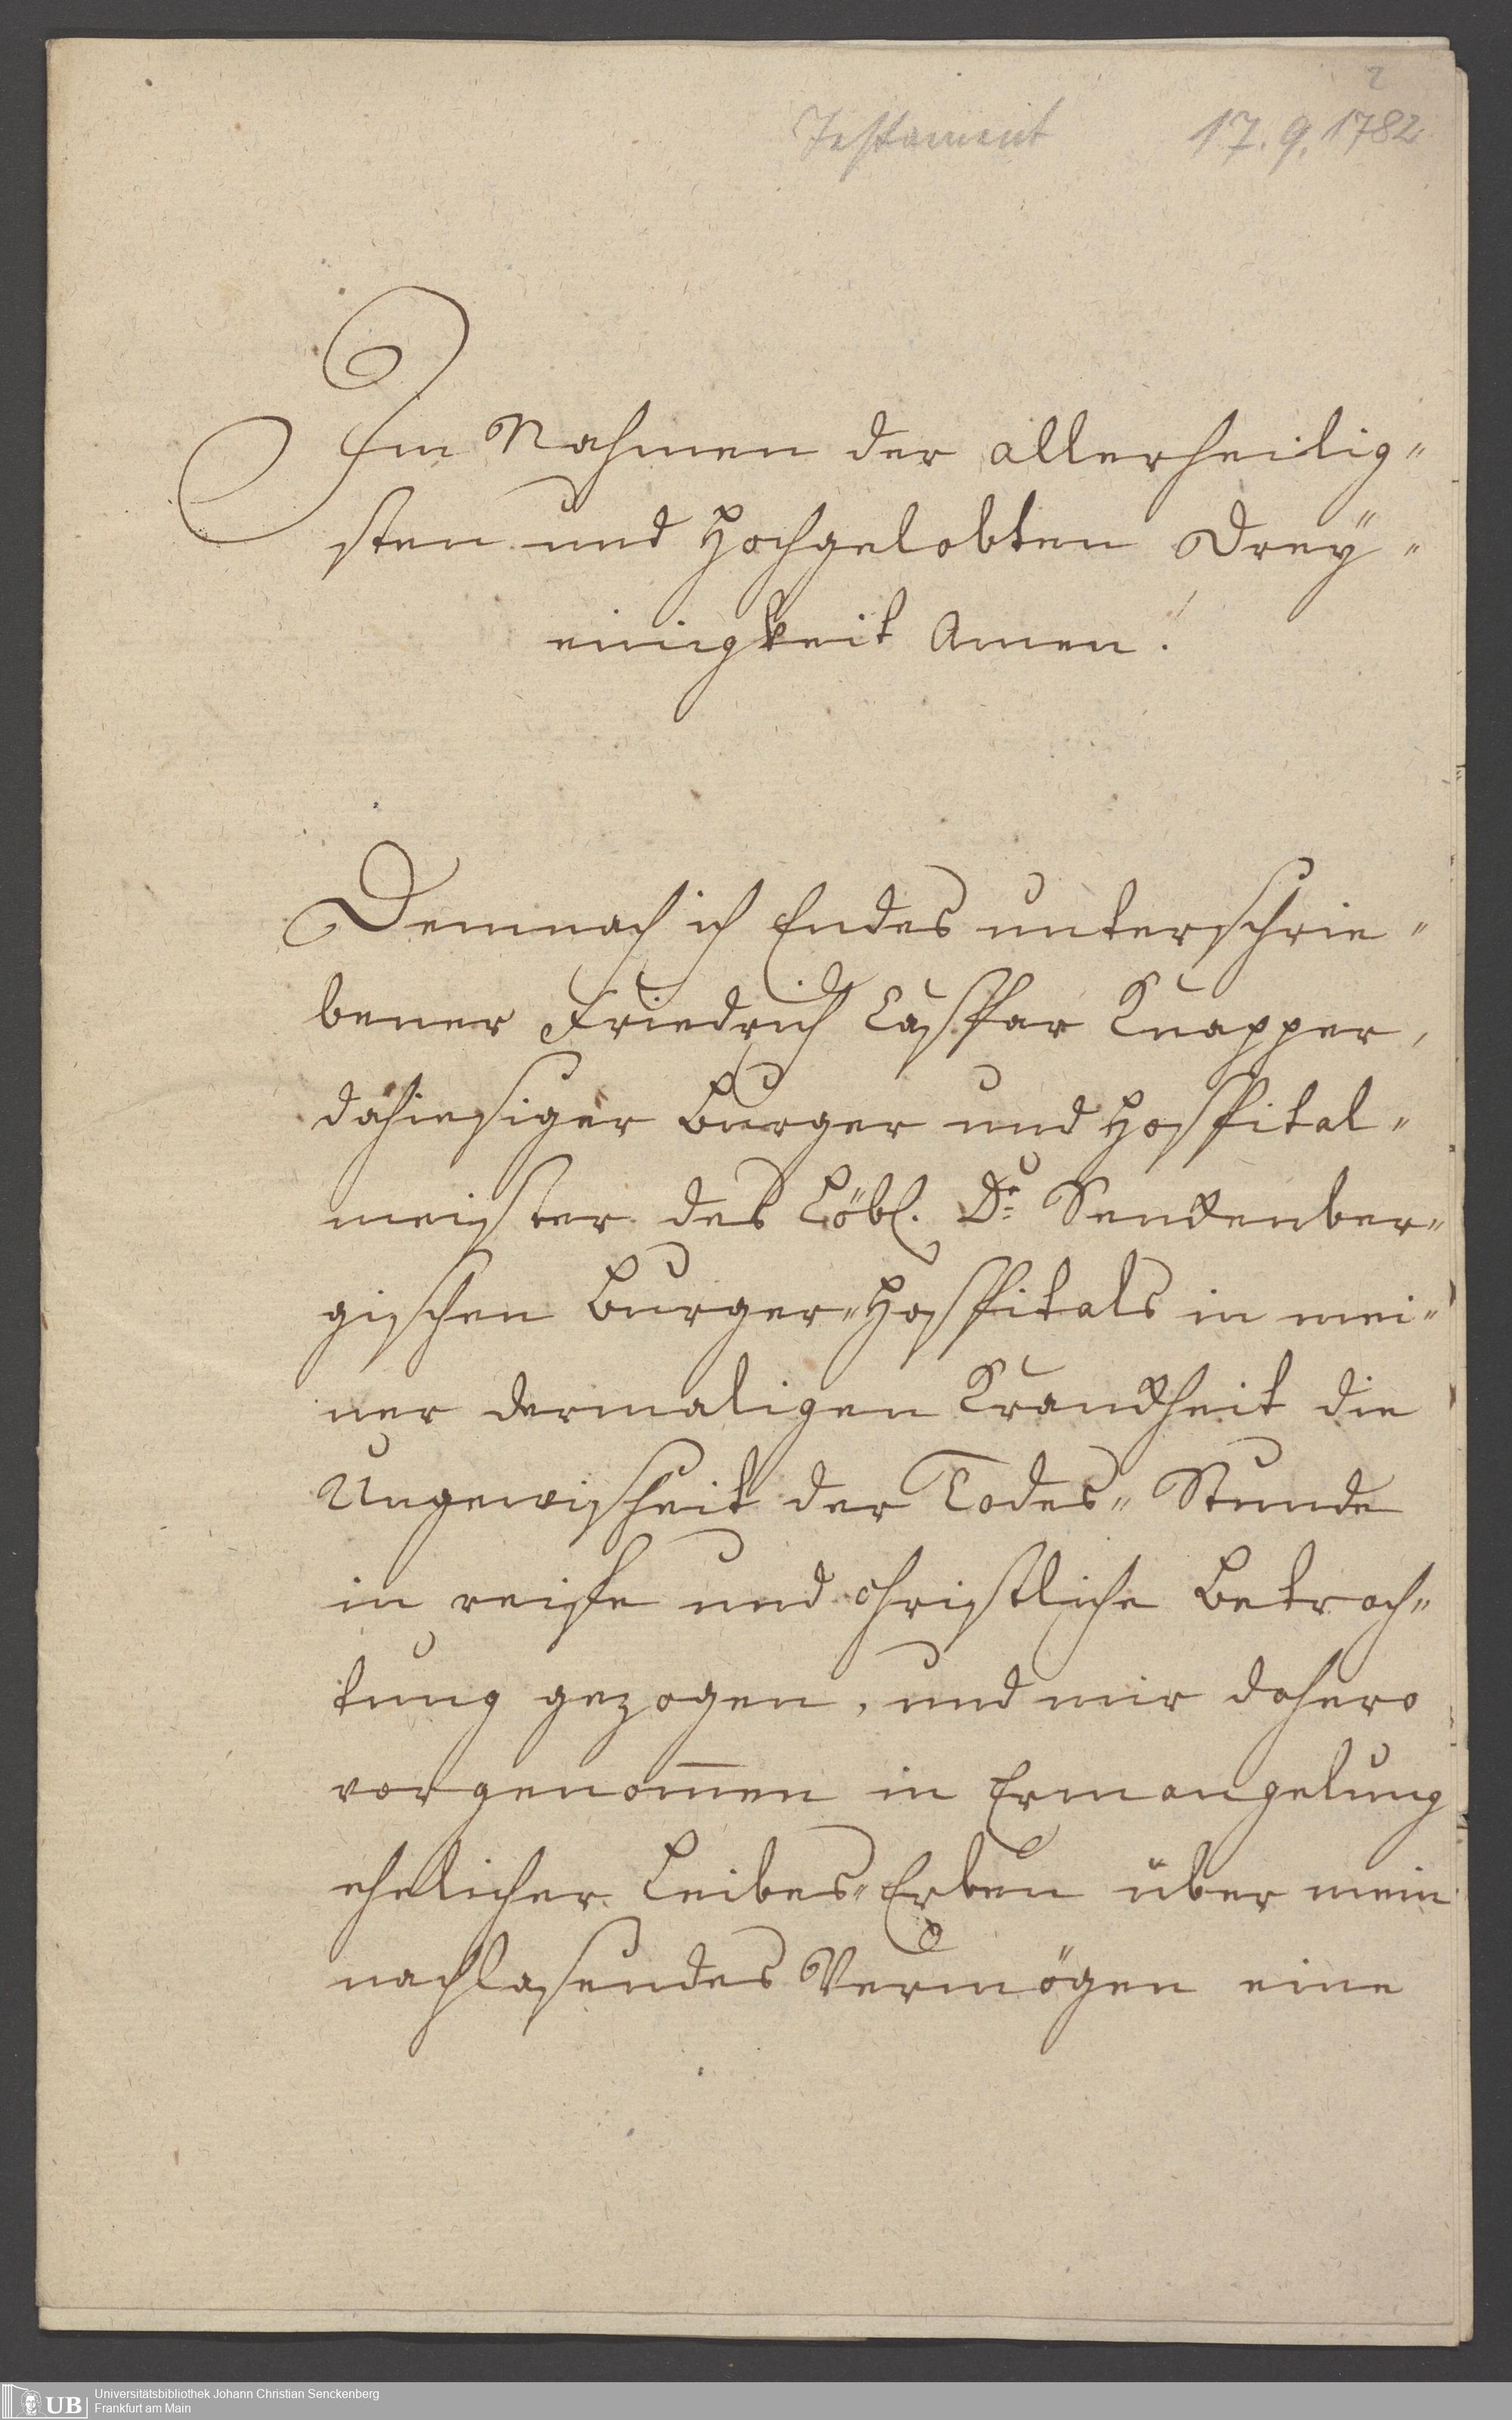 2
Testament 17. 9. 1782
Im Nahmen der allerheilig"
sten und Hochgelobten Drey"
einigkeit Amen!
Demnach ich Endes unterschrie"
bener Friedrich Caspar Knapper,
dahiesiger Burger und Hospital"
meister des Löbl. Dr. Senckenber"
gischen Burger"Hospitals in mei"
ner dermaligen Kranckheit die
Ungewisheit der Todes" Stunde
in reife und christliche Betrach"
tung gezogen, und mir dahero
vorgenom̅en in Ermangelung
ehelicher Leibes"Erben über mein
nachlasendes Vermögen eine
UB
Universitätsbibliothek Johann Christian Senckenberg
Frankfurt am Main